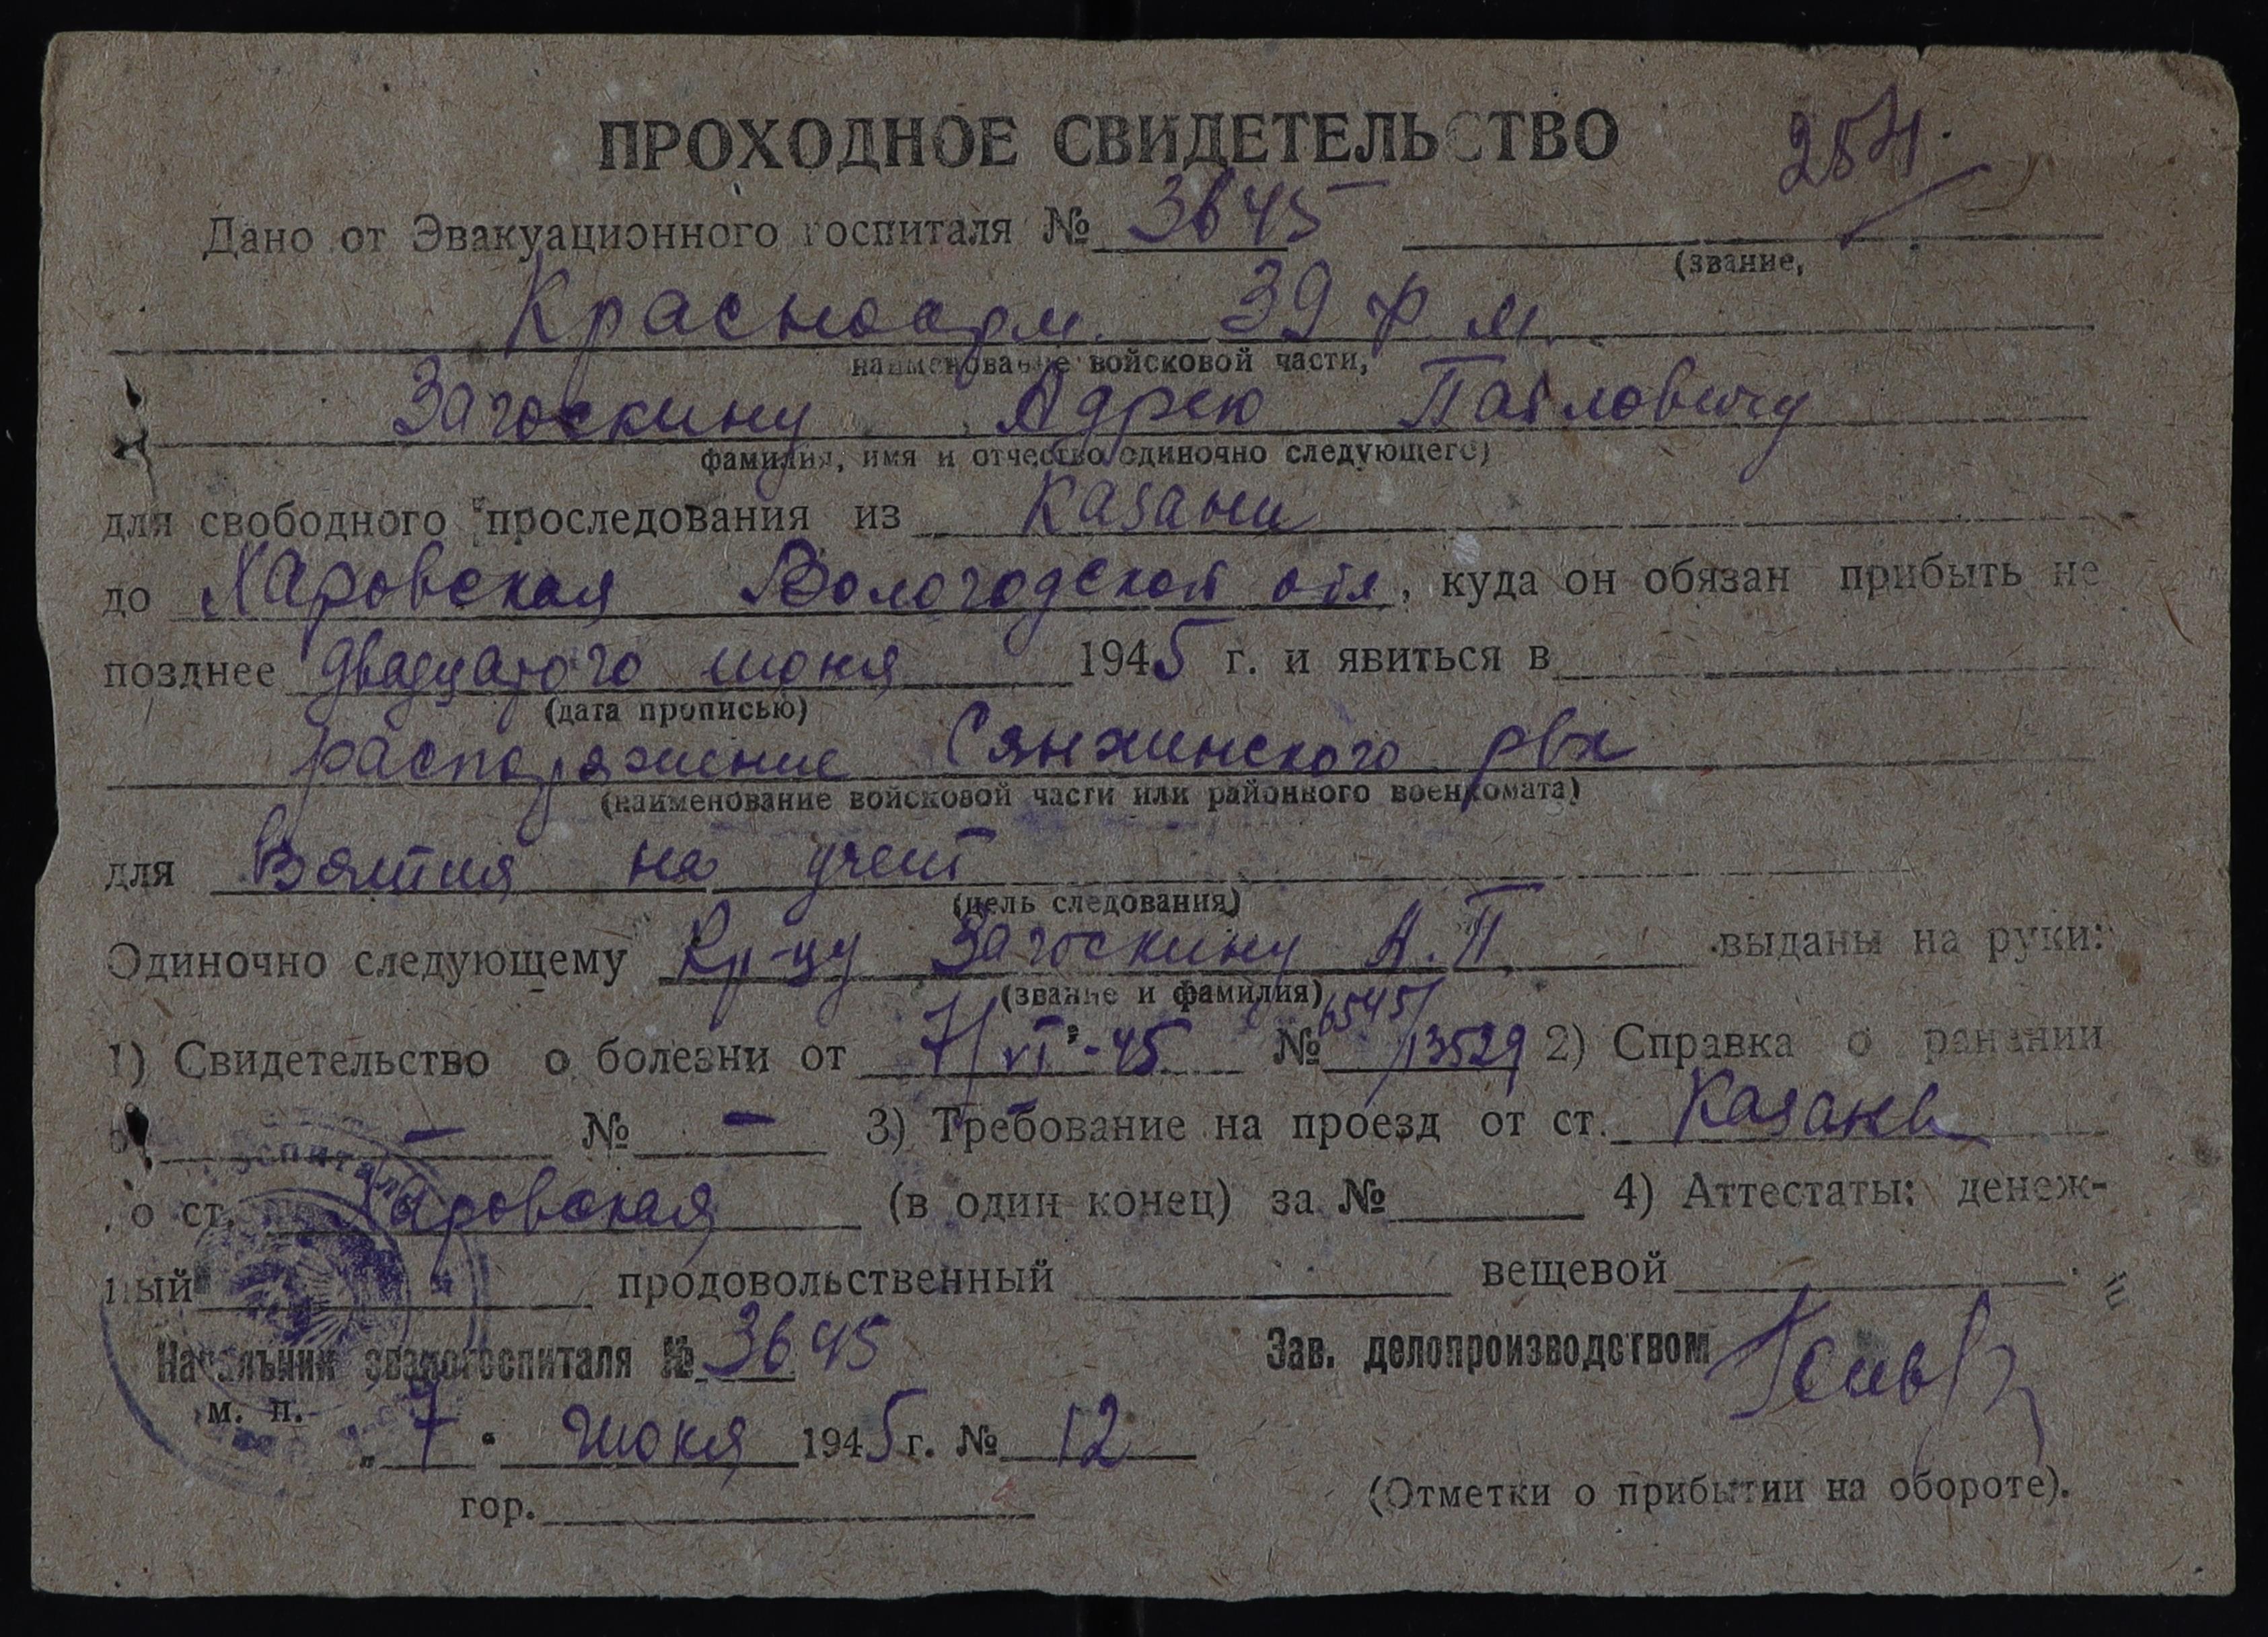 ПРОХОДНОЕ СВИДЕТЕЛЬСТВО
254.
Дано от Эвакуационного госпиталя № 3645
(звание,
Красноарм. 39 ф м.
наименование войсковой части,
Загоскину Адрею Павловичу
фамилия, имя и отчество одиночно следующего)
для свободного проследования из Казани
до Харовская Вологодской обл, куда он обязан прибыть не
позднее двадцатого июня 1945 г. и явиться в
(дата прописью)
распоряжение Сянжинского рвк
(наименование войсковой части или районного военкомата)
для Взятия на учет
(цель следования)
Одиночно следующему Кр-цу Загоскину А.П. выданы на руки:
(звание и фамилия)
1) Свидетельство о болезни от 7/VI-45 № 6545/13529 2) Справка о ранении
— № — 3) Требование на проезд от ст. Казань
о ст. Харовская (в один конец) за № 4) Аттестаты: денеж-
ный продовольственный вещевой
Начальник эвакогоспиталя № 3645 Зав. делопроизводством
м. п.
„ 7 " Июня 1945 г. № 12
(Отметки о прибытии на обороте).
гор.